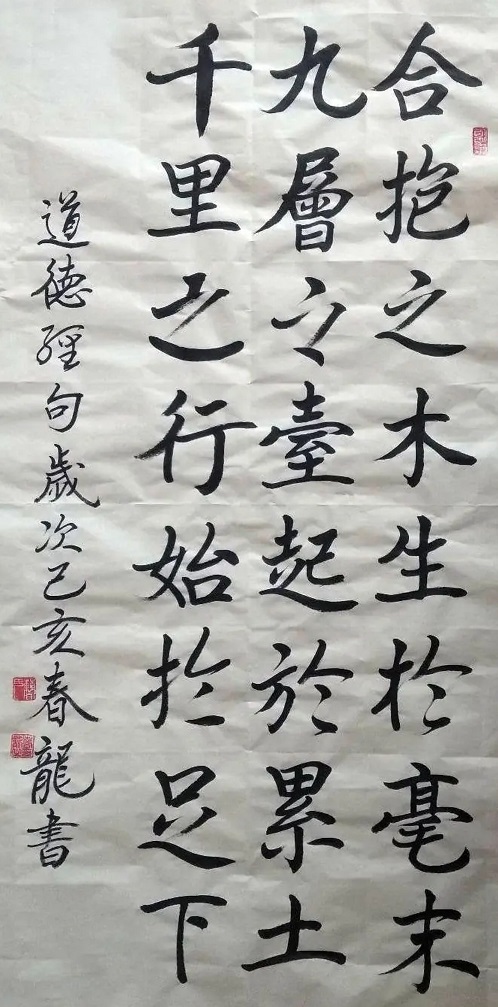 合抱之木生於毫末
九層之臺起於累土
千里之行始於足下
道德經句歲次己亥春龍書